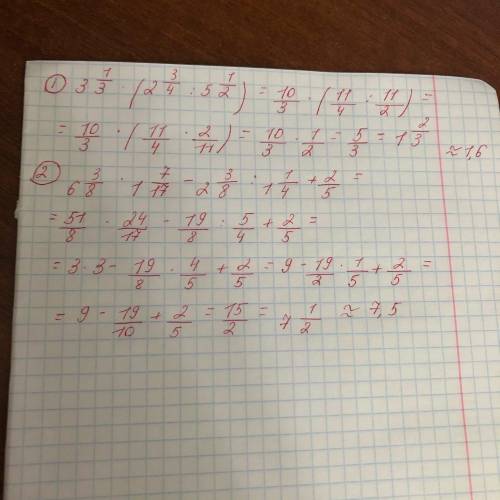 ① 3 1/3 · (2 3/4 : 5 1/2) = 10/3 · (11/4 : 11/2) =
= 10/3 · (11/4 · 2/11) = 10/3 · 1/2 = 5/3 = 1 2/3 ≈ 1,6
② 6 3/8 · 1 7/17 − 2 3/8 : 1 1/4 + 2/5 =
= 51/8 · 24/17 − 19/8 : 5/4 + 2/5 =
= 3 · 3 − 19/8 · 4/5 + 2/5 = 9 − 19/2 · 1/5 + 2/5 =
= 9 − 19/10 + 2/5 = 15/2 = 7 1/2 ≈ 7,5